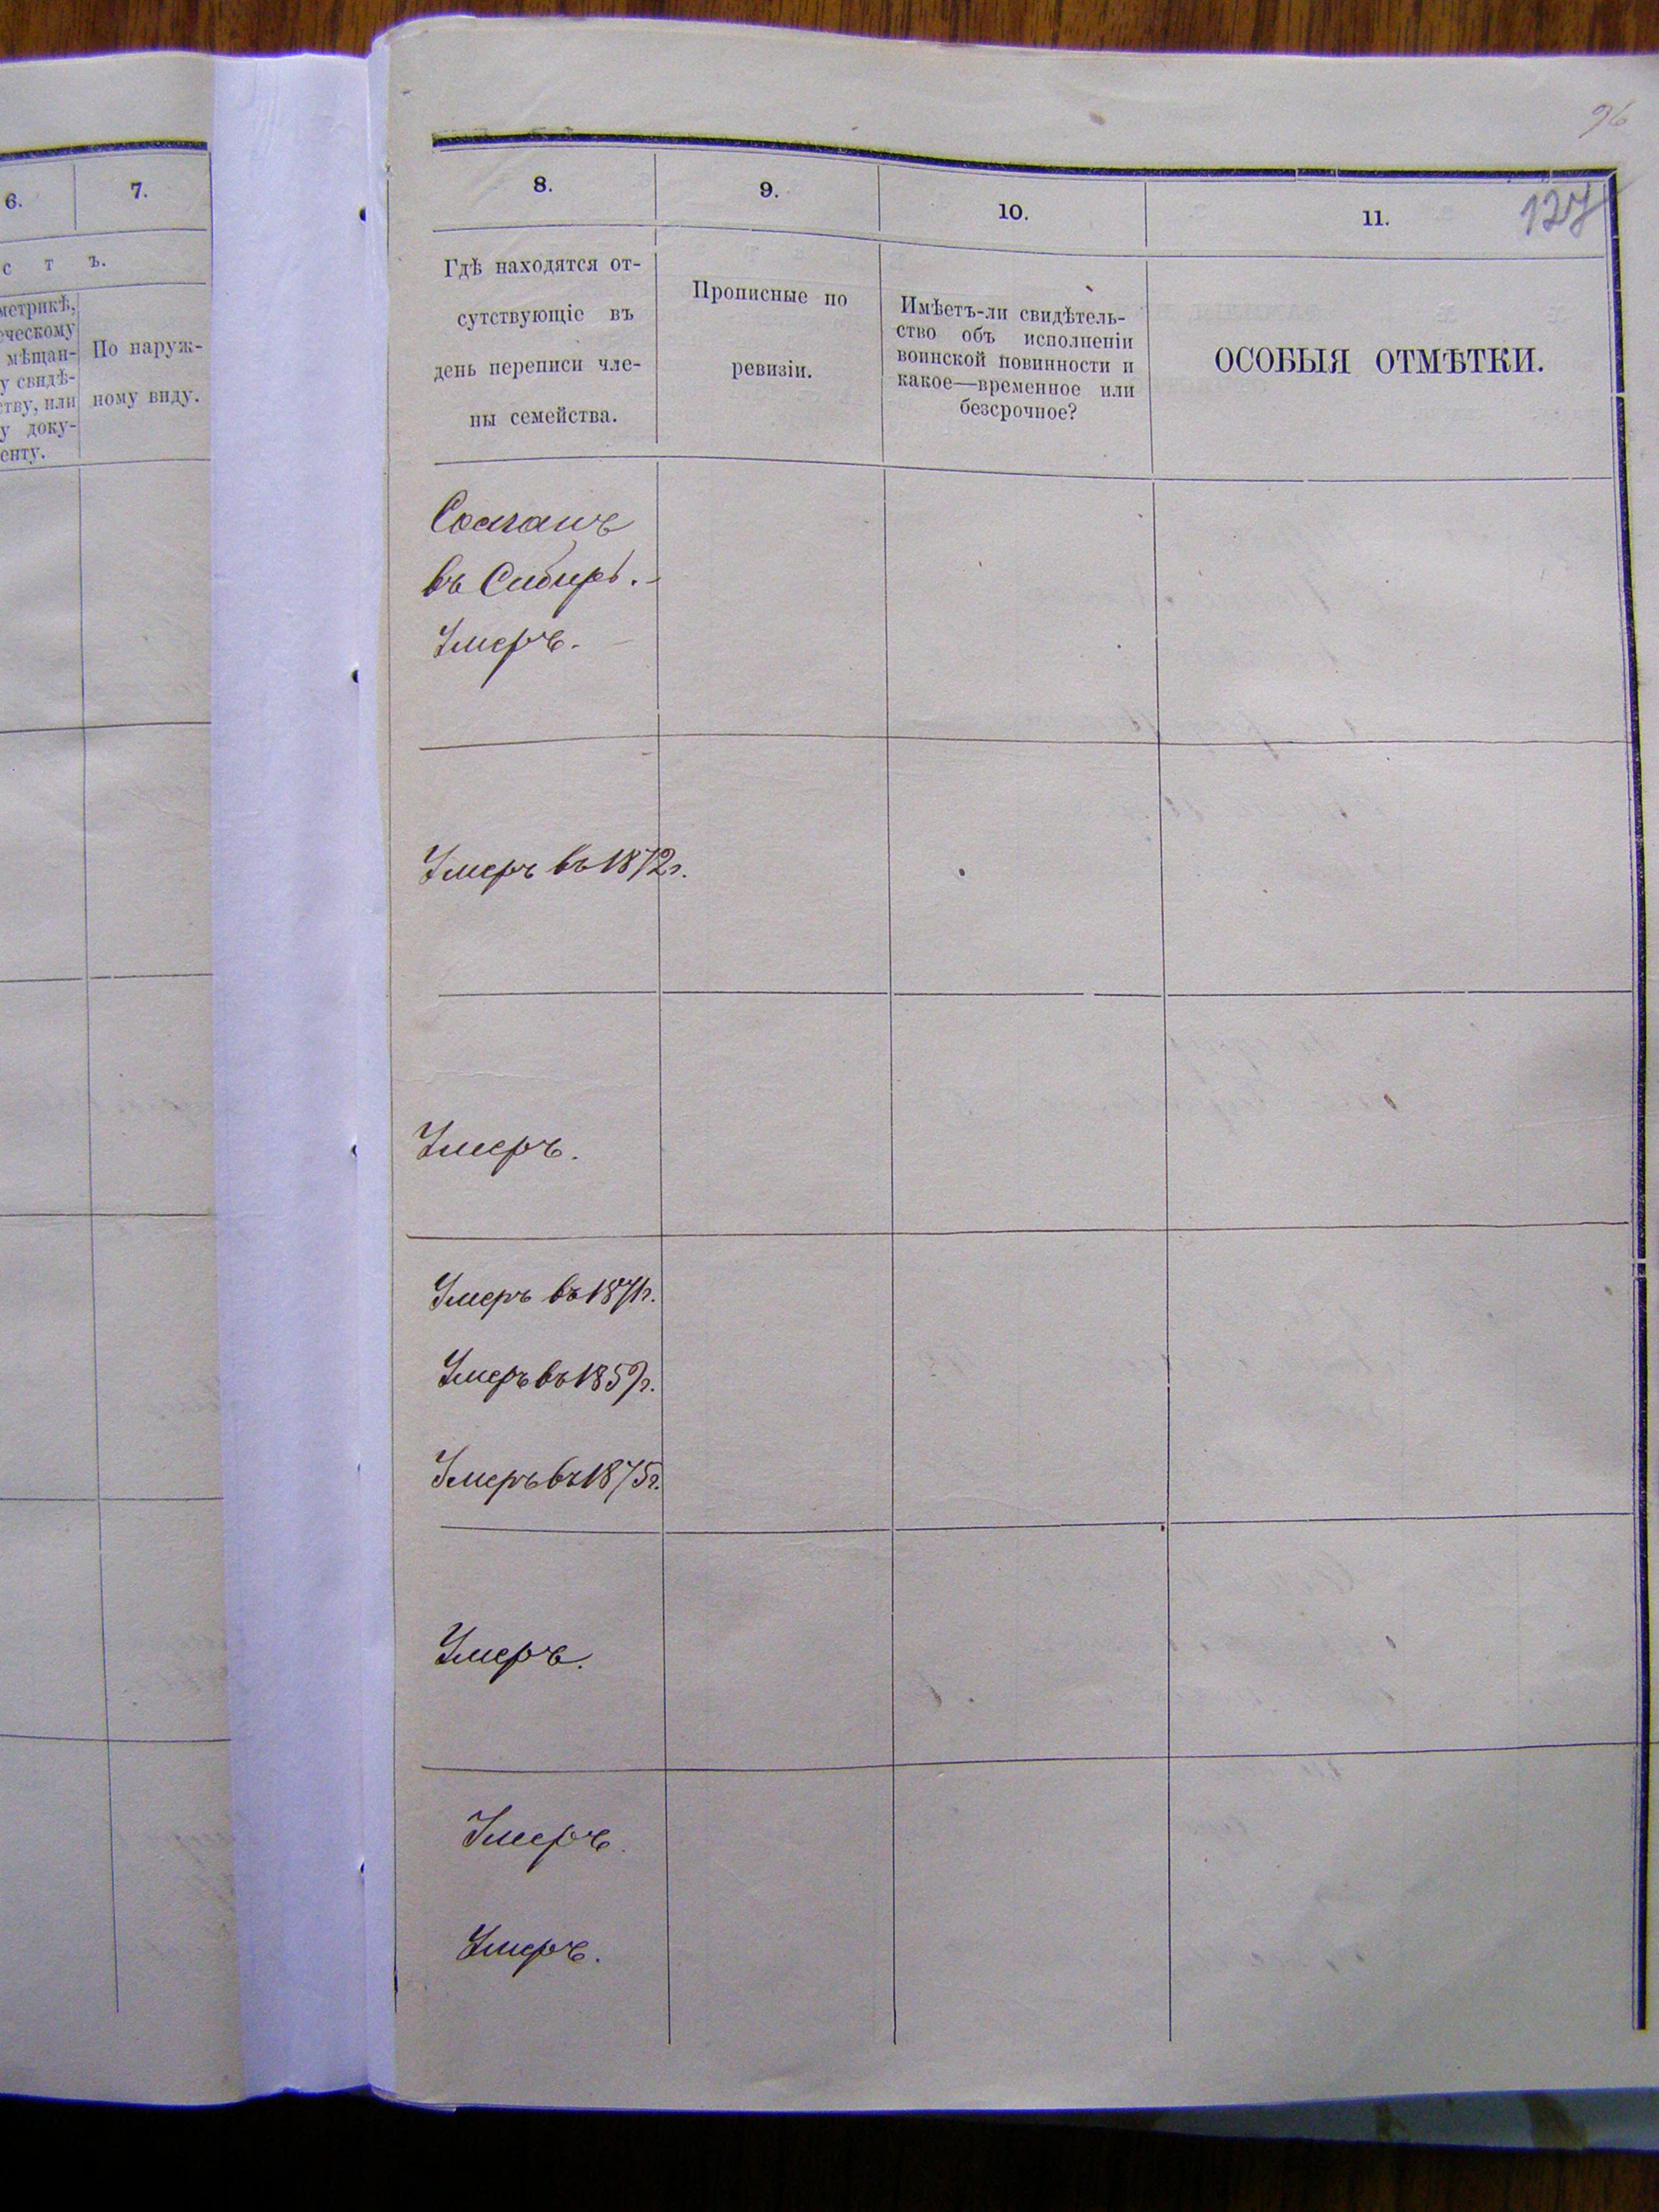 96
6.
7.
с т ъ.
метрикѣ,
ческому
мѣщан-
у свидѣ-
ству, или
у доку-
енту.
По наруж-
ному виду.
8.
9.
10.
11.
127
Гдѣ находятся от-
сутствующіе въ
день переписи чле-
ны семейства.
Прописные по
ревизіи.
Имѣетъ-ли свидѣтель-
ство объ исполненіи
воинской повинности и
какое—временное или
безсрочное?
ОСОБЫЯ ОТМѢТКИ.
Сосланъ
въ Сибирь.
Умеръ.
Умеръ въ 1872г.
Умеръ.
Умеръ въ 1871г.
Умеръ въ 1859г.
Умеръ въ 1875г.
Умеръ.
Умеръ.
Умеръ.